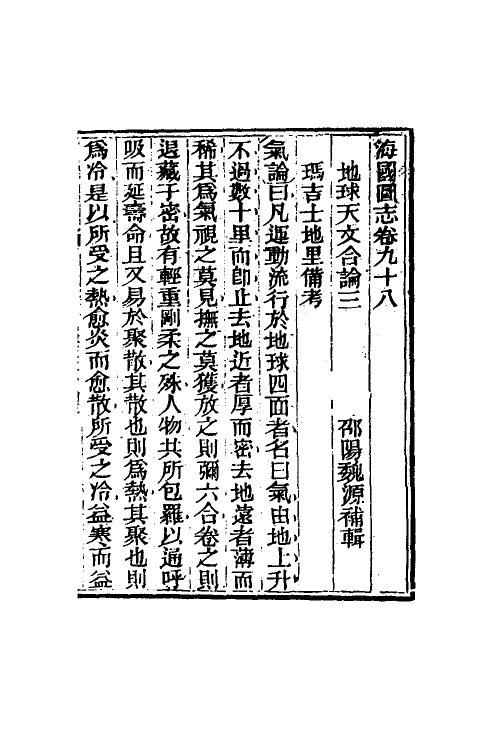 海國圖志卷九十八
地球天文合論三
邵陽魏源補輯
瑪吉士地里備考
氣論曰凡運動流行於地球四面者名曰氣由地上升
不過數十里而卽止去地近者厚而密去地遠者薄而
稀其爲氣視之莫見撫之莫獲放之則彌六合卷之則
退藏于密故有輕重剛柔之殊人物共所包羅以通呼
吸而延壽命且又易於聚散其散也則爲熱其聚也則
爲冷是以所受之熱愈炎而愈散所受之冷益寒而益